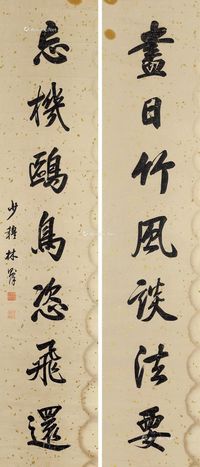 盡日竹風談法要
忘機鷗鳥恣飛還
少穆林